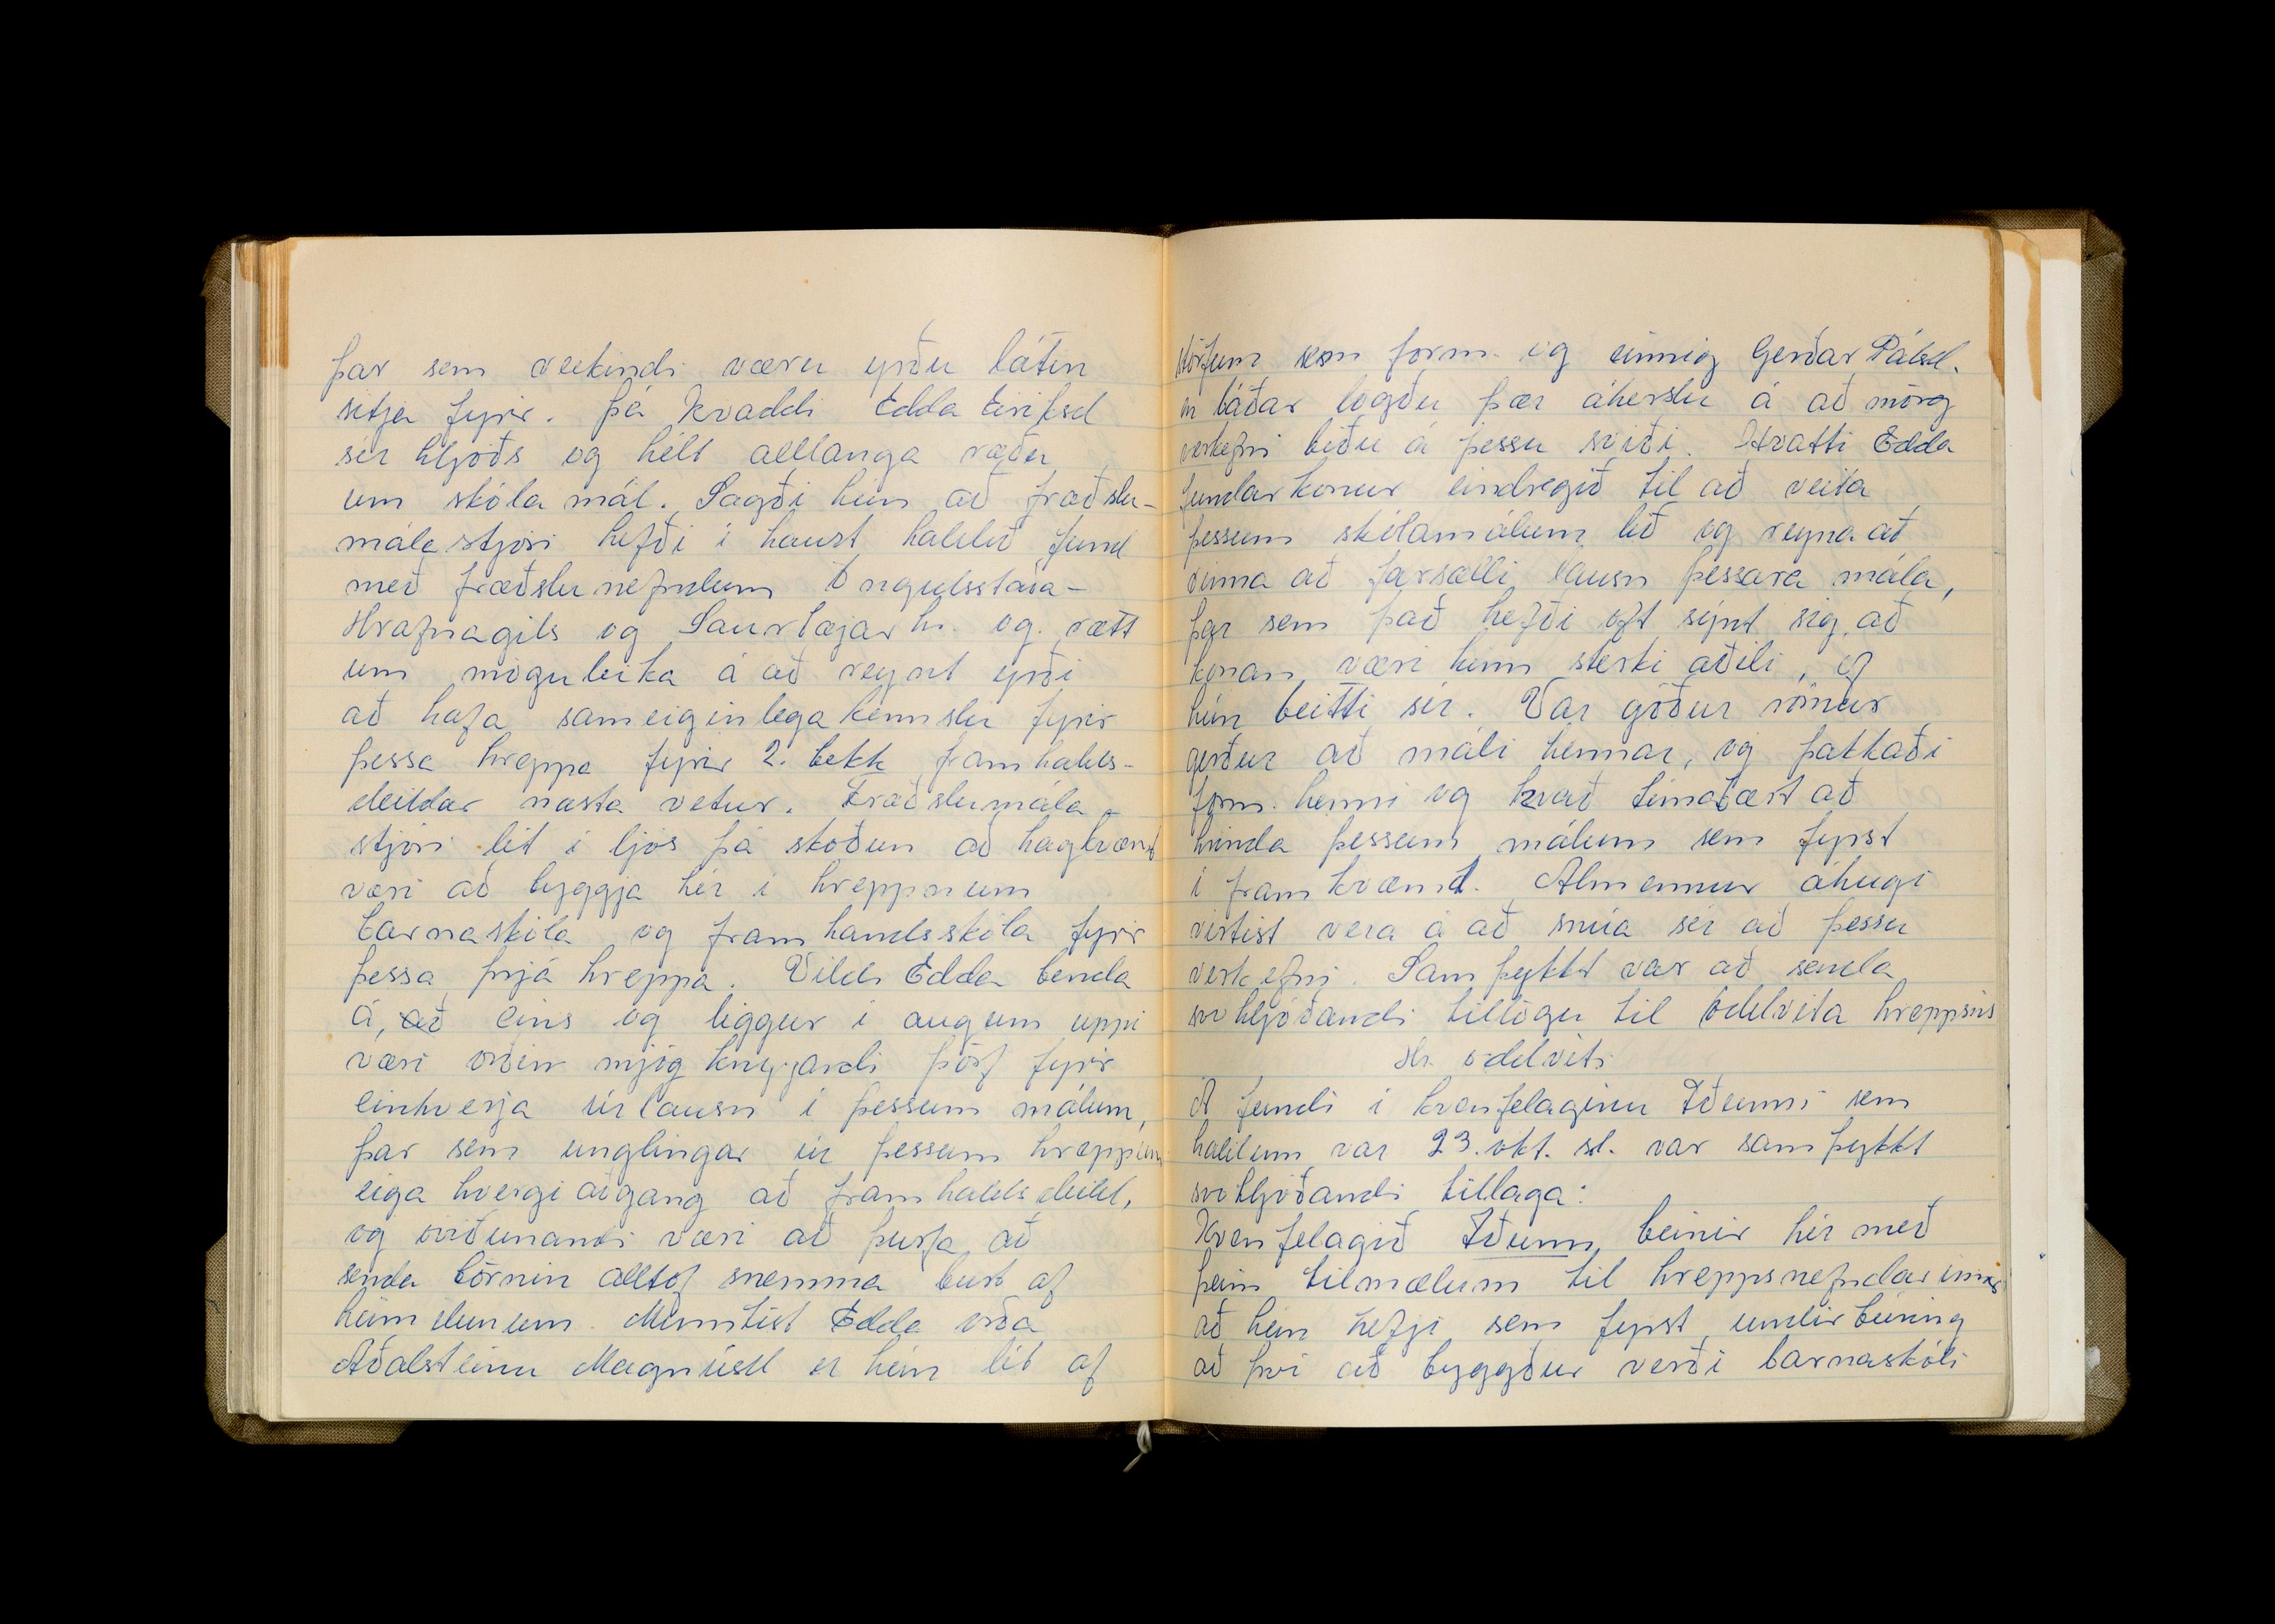 þar sem veikindi væru yrðu látin
sitja fyrir. Þá kvaddi Edda Eiríksd
sér hljóðs og hélt alllanga ræðu
um skólamál. Sagði hún að fræðslu-
málastjóri hefði í haust haldið fund
með fræðslunefndum Öngulsstaða-
Hrafnagils og Saurbæjarhr. og rætt
um möguleika á að reynt yrði
að hafa sameiginlega kennslu fyrir
þessa hreppa fyrir 2. bekk framhalds-
deildar næsta vetur. Fræðslumála-
stjóri lét í ljós þá skoðun að hagkvæmt
væri að byggja hér í hreppnum
barnaskóla og framhandsskóla fyrir
þessa þrjá hreppa. Vildi Edda benda
á, að eins og liggur í augum uppi
væri orðin mjög knýjandi þörf fyrir
einhverja úrlausn í þessum málum,
þar sem unglingar úr þessum hreppum
eiga hvergi aðgang að framhaldsdeild,
og óviðunandi væri að þurfa að
senda börnin alltof snemma burt af
heimilunum. Minntist Edda orða
Aðalsteinu Magnúsd er hún lét af
störfum sem form. og einnig Gerðar Pálsd.
en báðar lögðu þær áherslu á að mörg
verkefni biðu á þessu sviði. Hvatti Edda
fundarkonur eindregið til að veita
þessum skólamálum lið og reyna að
vinna að farsælli lausn þessara mála,
þar sem það hefði oft sýnt sig að
konan væri hinn sterki aðili, ef
hún beitti sér. Var góður rómur
gerður að máli hennar, og þakkaði
form. henni og kvað tímabært að
hrinda þessum málum sem fyrst
í framkvæmd. Almennur áhugi
virtist vera á að snúa sér að þessu
verkefni. Samþykkt var að senda
svohljóðandi tillögu til oddvita hreppsins
Hr. oddviti
Á fundi í kvenfelaginu Iðunni sem
haldinn var 23. okt. sl. var samþykkt
svohljóðandi tillaga:
Kvenfelagið Iðunn beinir hér með
þeim tilmælum til hreppsnefndarinnar
að hún hefji sem fyrst undirbúning
að því að byggður verði barnaskóli